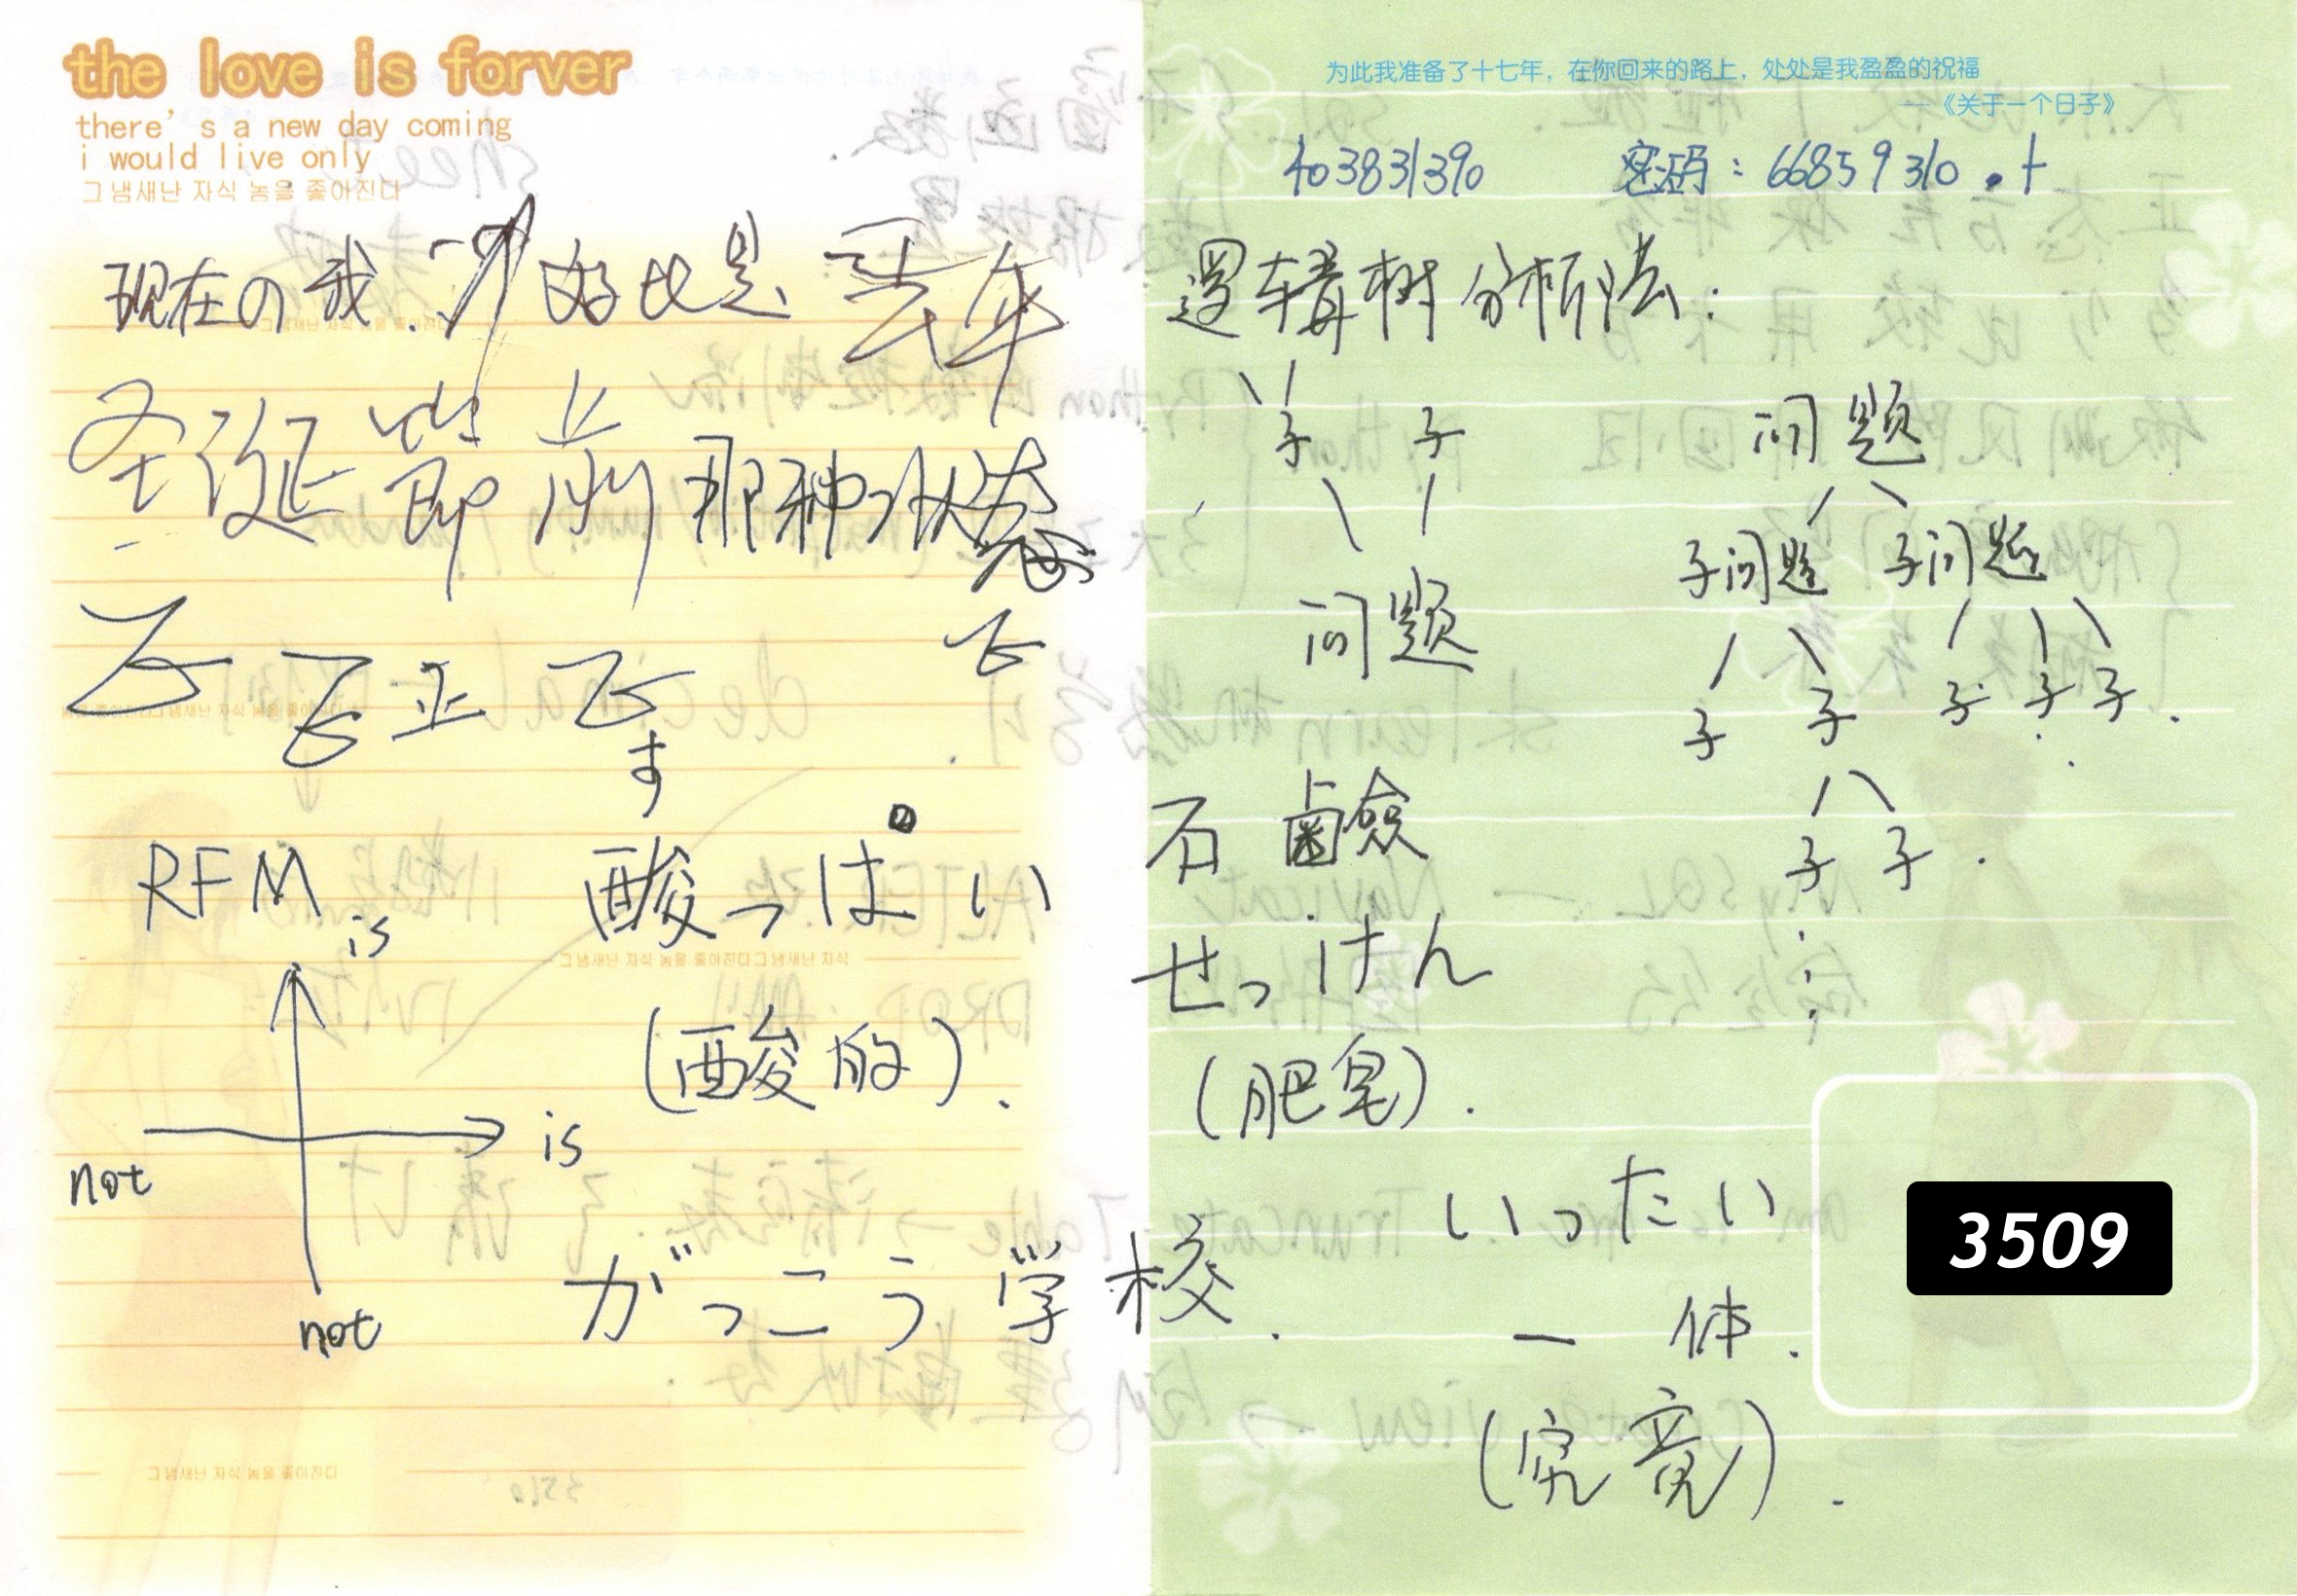 the love is forver
there's a new day coming
i would live only
그냄새난 자식 놈을 좋아진다
现在の我. 好比是 去年
圣诞节前那种状态
正
す
RFM
is
is
not
not
酸っぱい
(酸的).
がっこう 学校.
그냄새난 자식 놈을 좋아진다그냄새난 자식
그냄새난 자식 놈을 좋아진다
为此我准备了十七年，在你回来的路上，处处是我盈盈的祝福
——《关于一个日子》
403831390 密码：66859310.t
逻辑树分析法：
子 子
问题
问题
子问题 子问题
子 子 子 子 子.
子 子.
石鹼
せっけん
(肥皂).
いったい
一体.
(究竟).
3509